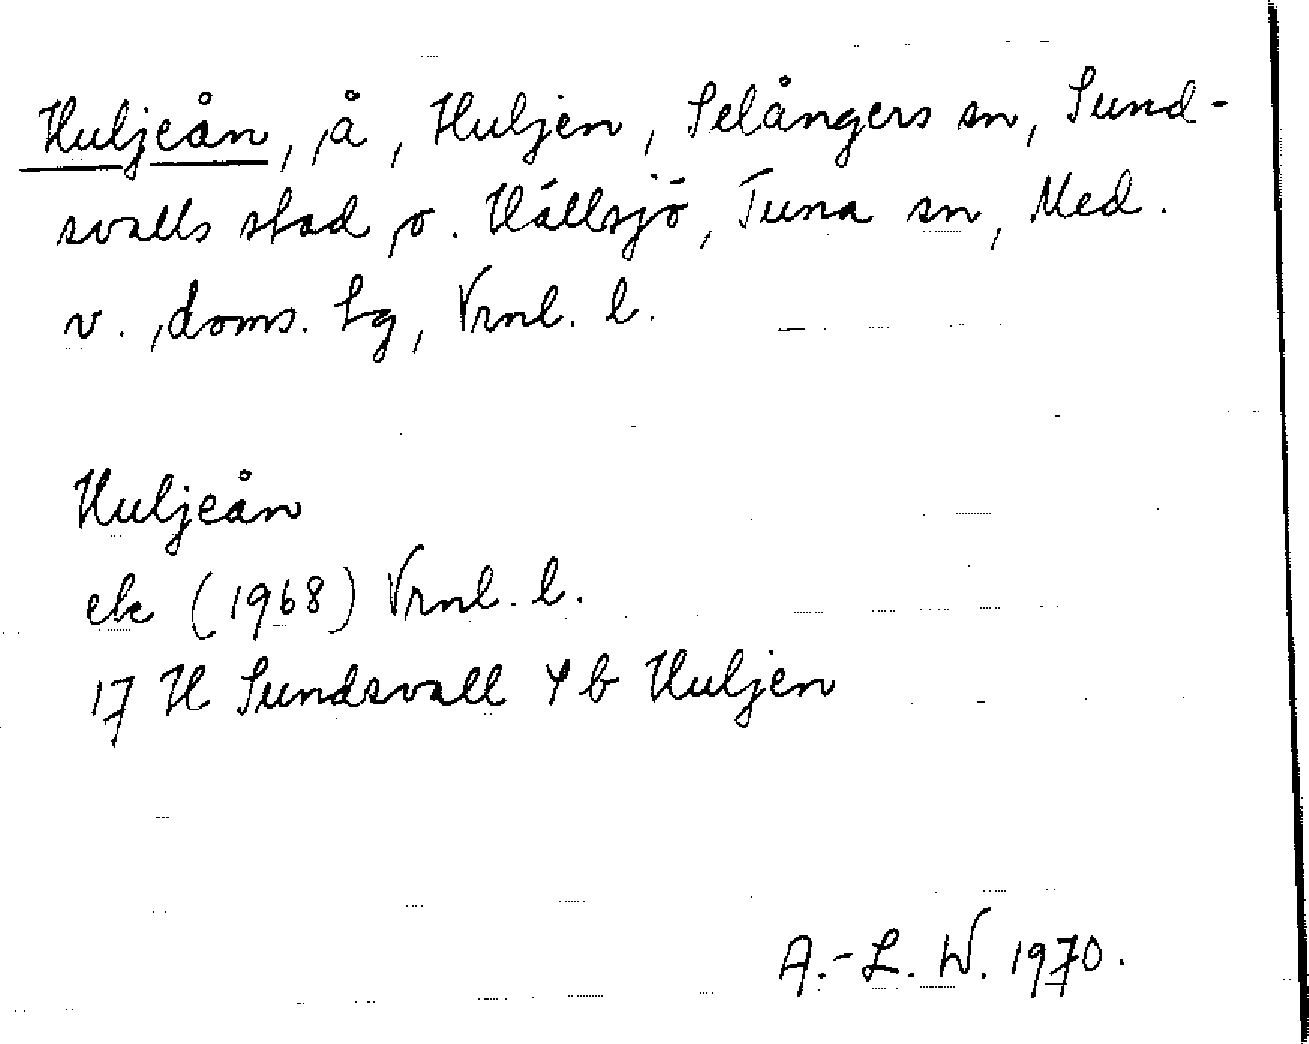 Huljeån, å, Huljen, Selångers sn, Sund-
svalls stad o. Hällsjö, Tuna sn, Med.
v. doms. hg, Vrnl. l.
Huljeån
ek (1968) Vrnl. l.
17 H Sundsvall 4 b Huljen
A.-L. W. 1970.